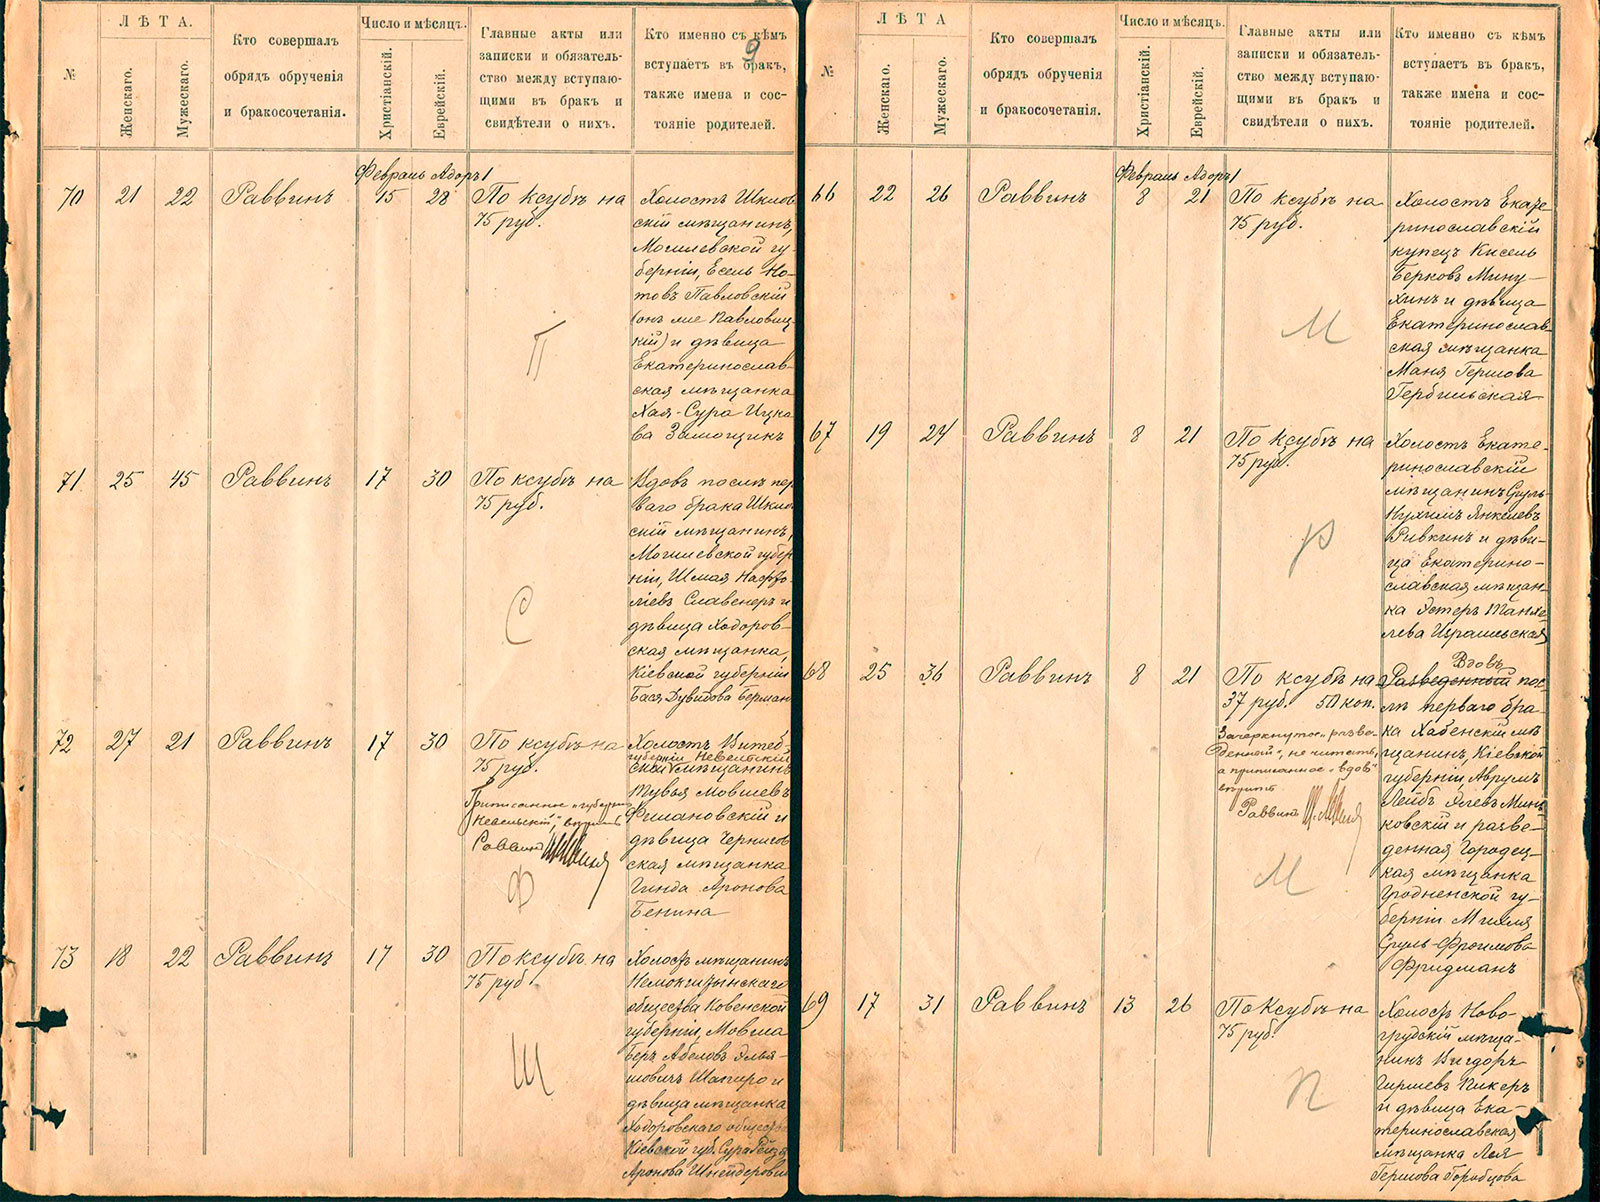 9
№
ЛѢТА.
Женскаго.
Мужескаго.
Кто совершалъ
обрядъ обрученія
и бракосочетанія.
Число и мѣсяцъ.
Христіанскій.
Еврейскій.
Главные акты или
записки и обязатель-
ство между вступаю-
щими въ бракъ и
свидѣтели о нихъ.
Кто именно съ кѣмъ
вступаетъ въ бракъ,
также имена и сос-
тояніе родителей.
Февраль Адоръ 1
70 21 22 Раввинъ 15 28
По ксубѣ на
75 руб.
П
Холостъ Шклов
скій мѣщанинъ,
Могилевской гу-
берніи, Есель Но-
товъ Павловскій
(онъ же Павловиц-
кій) и дѣвица
Екатеринослав-
ская мѣщанка
Хая-Сура Ицко
ва Замощикъ
71 25 45 Раввинъ 17 30
По ксубѣ на
75 руб.
С
Вдовъ послѣ пер
ваго брака Шклов
скій мѣщанинъ,
Могилевской губер
ніи, Шмая Нафто
ліевъ Славенеръ и
дѣвица Ходоров-
ская мѣщанка,
Кіевской губерніи
Бася Дувидова
72 27 21 Раввинъ 17 30
По ксубѣ на
75 руб.
Приписанное „губерніи
Невельскій", вѣрить
Раввинъ
Ф
Холостъ Витеб-
губерніи Невельскій
ской мѣщанинъ
Тувья Мовшевъ
Филановскій и
дѣвица Чернигов
ская мѣщанка
Гинда Аронова
Бенина
73 18 22 Раввинъ 17 30
По ксубѣ на
75 руб.
Ш
Холостъ мѣщанинъ
общества Ковенской
губерніи, Мовша
Беръ Абеловъ Элья-
шовичъ Шапиро и
дѣвица мѣщанка
Ходоровскаго общества
Кіевской губ. Сура Рейзя
Аронова Шнейдерова
№
ЛѢТА
Женскаго.
Мужескаго.
Кто совершалъ
обрядъ обрученія
и бракосочетанія.
Число и мѣсяцъ.
Христіанскій.
Еврейскій.
Главные акты или
записки и обязатель-
ство между вступаю-
щими въ бракъ и
свидѣтели о нихъ.
Кто именно съ кѣмъ
вступаетъ въ бракъ,
также имена и сос-
тояніе родителей.
Февраль Адоръ 1
66 22 26 Раввинъ 8 21
По ксубѣ на
75 руб.
М
Холостъ Екате-
ринославскій
купецъ Кисель
Берковъ Мину-
хинъ и дѣвица
Екатеринослав-
ская мѣщанка
Маня Гершова
Гербильская
67 19 24 Раввинъ 8 21
По ксубѣ на
75 руб.
Р
Холостъ Екате-
ринославскій
мѣщанинъ Сруль
Нухимъ Янкелевъ
Ривкинъ и дѣви-
ца Екатерино-
славская мѣщан-
ка Эстеръ Танхе
лева Израильская
68 25 36 Раввинъ 8 21
По ксубѣ на
37 руб. 50 коп.
Зачеркнутое „разве-
денный", не читать,
а приписанное „вдовъ"
вѣрить
Раввинъ
М
Вдовъ
Разведенный пос-
лѣ перваго бра-
ка Хабенскій мѣ
щанинъ, Кіевской
губерніи, Аврумъ
Лейбъ Элевъ Минь
ковскій и разве-
денная Городец-
кая мѣщанка
Гродненской гу-
берніи Михля
Сруль-Фроимова
Фридманъ
69 17 31 Раввинъ 13 26
По Ксубѣ на
75 руб.
П
Холостъ Ново-
грудскій мѣща-
нинъ Вигдоръ
Гиршевъ Пикеръ
и дѣвица Ека-
теринославская
мѣщанка Лея
Гершова Горобцова